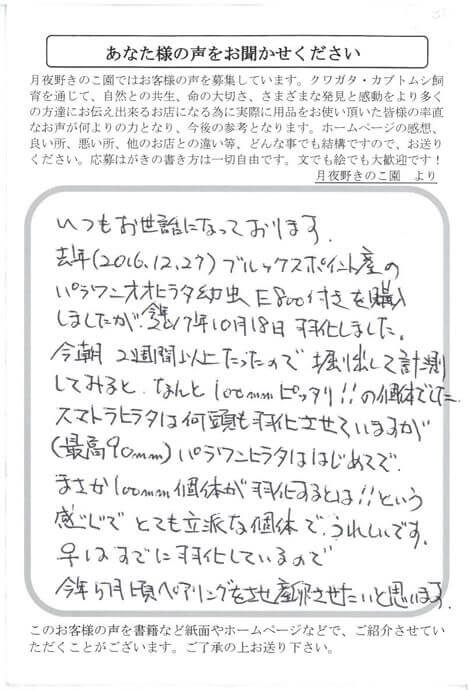 あなた様の声をお聞かせください
月夜野きのこ園ではお客様の声を募集しています。クワガタ・カブトムシ飼
育を通じて、自然との共生、命の大切さ、さまざまな発見と感動をより多く
の方達にお伝え出来るお店になる為に実際に用品をお使い頂いた皆様の率直
なお声が何よりの力となり、今後の参考となります。ホームページの感想、
良い所、悪い所、他のお店との違い等、どんな事でも結構ですので、お送り
ください。応募はがきの書き方は一切自由です。文でも絵でも大歓迎です！
月夜野きのこ園　より
いつもお世話になっております.
去年(2016.12.27) ブルックスポイント産の
パラワンオオヒラタ幼虫 E800付きを購入
しましたが、今年2017年10月18日 羽化しました。
今朝 2週間以上たったので 掘り出して計測
してみると、なんと 100mmピッタリ!!の個体でした
スマトラヒラタは何頭も羽化させていますが
(最高90mm) パラワンヒラタははじめてで、
まさか100mm個体が羽化するとは!!という
感じで とても立派な個体で、うれしいです。
♀はすでに羽化しているので
今年 月頃ペアリングをさせ産卵させたいと思います.
このお客様の声を書籍など紙面やホームページなどで、ご紹介させてい
ただくことがございます。ご了承の上お送り下さい。